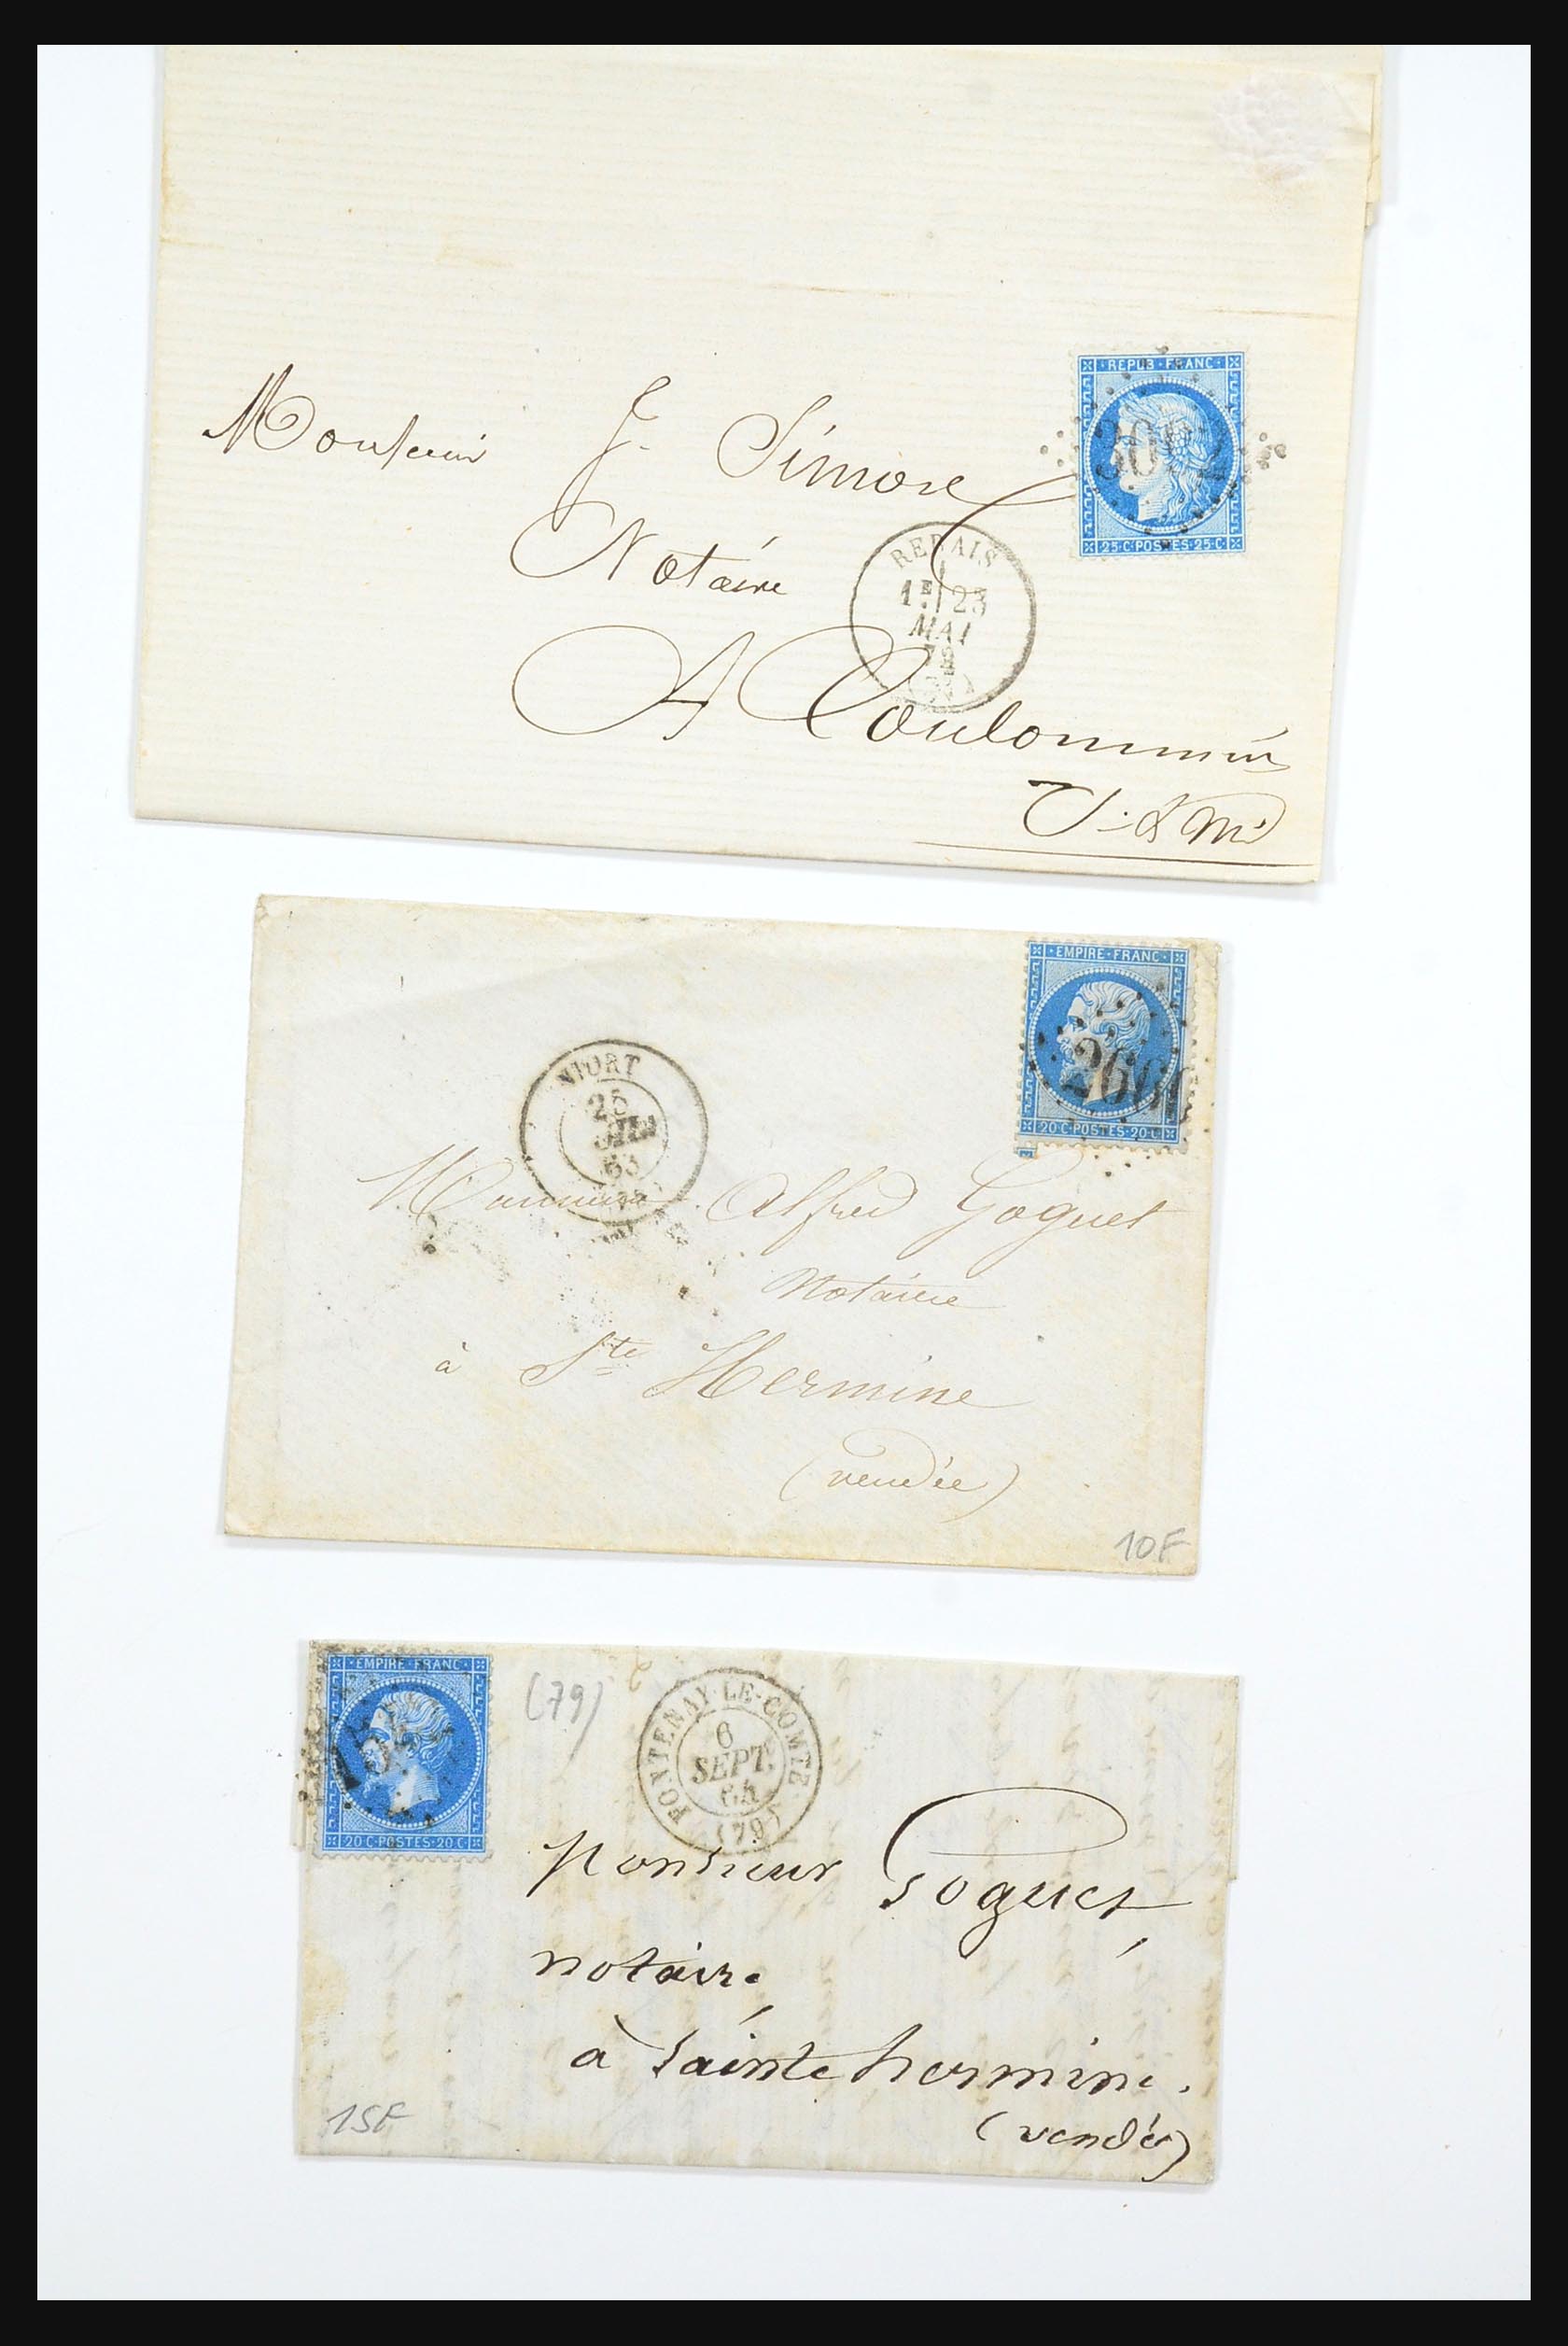 REPUB·FRANC
3092
25·C·POSTES·25·C
Monsieur J. Simon
Notaire
REBAIS
1E 23
MAI
A Coulommiers
S. & M.
EMPIRE·FRANC
20·C·POSTES·20·C
NIORT
25
63
Monsieur Alfred Goguet
Notaire
à Ste Hermine
(vendée)
10F
EMPIRE·FRANC
20·C·POSTES·20·C
(79)
FONTENAY-LE-COMTE
6
SEPT.
64
(79)
Monsieur Goguet,
notaire
à Sainte hermine.
(vendée)
15F